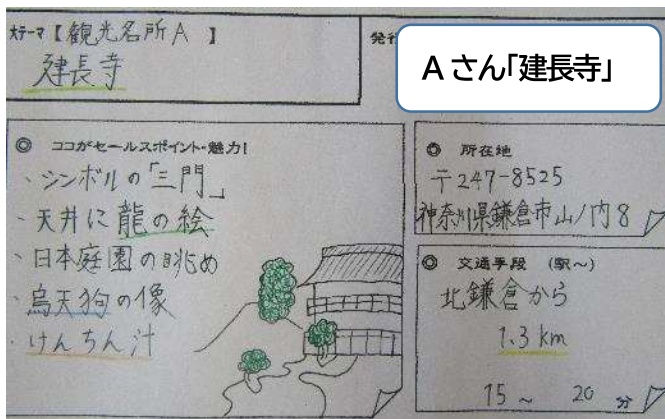 大テーマ【観光名所A】
建長寺
発行
Aさん「建長寺」
◎ ココがセールスポイント・魅力!
・シンボルの「三門」
・天井に龍の絵
・日本庭園の眺め
・烏天狗の像
・けんちん汁
◎ 所在地
〒247-8525
神奈川県鎌倉市山ノ内8
◎ 交通手段 (駅~)
北鎌倉から
1.3 km
15 ~ 20 分